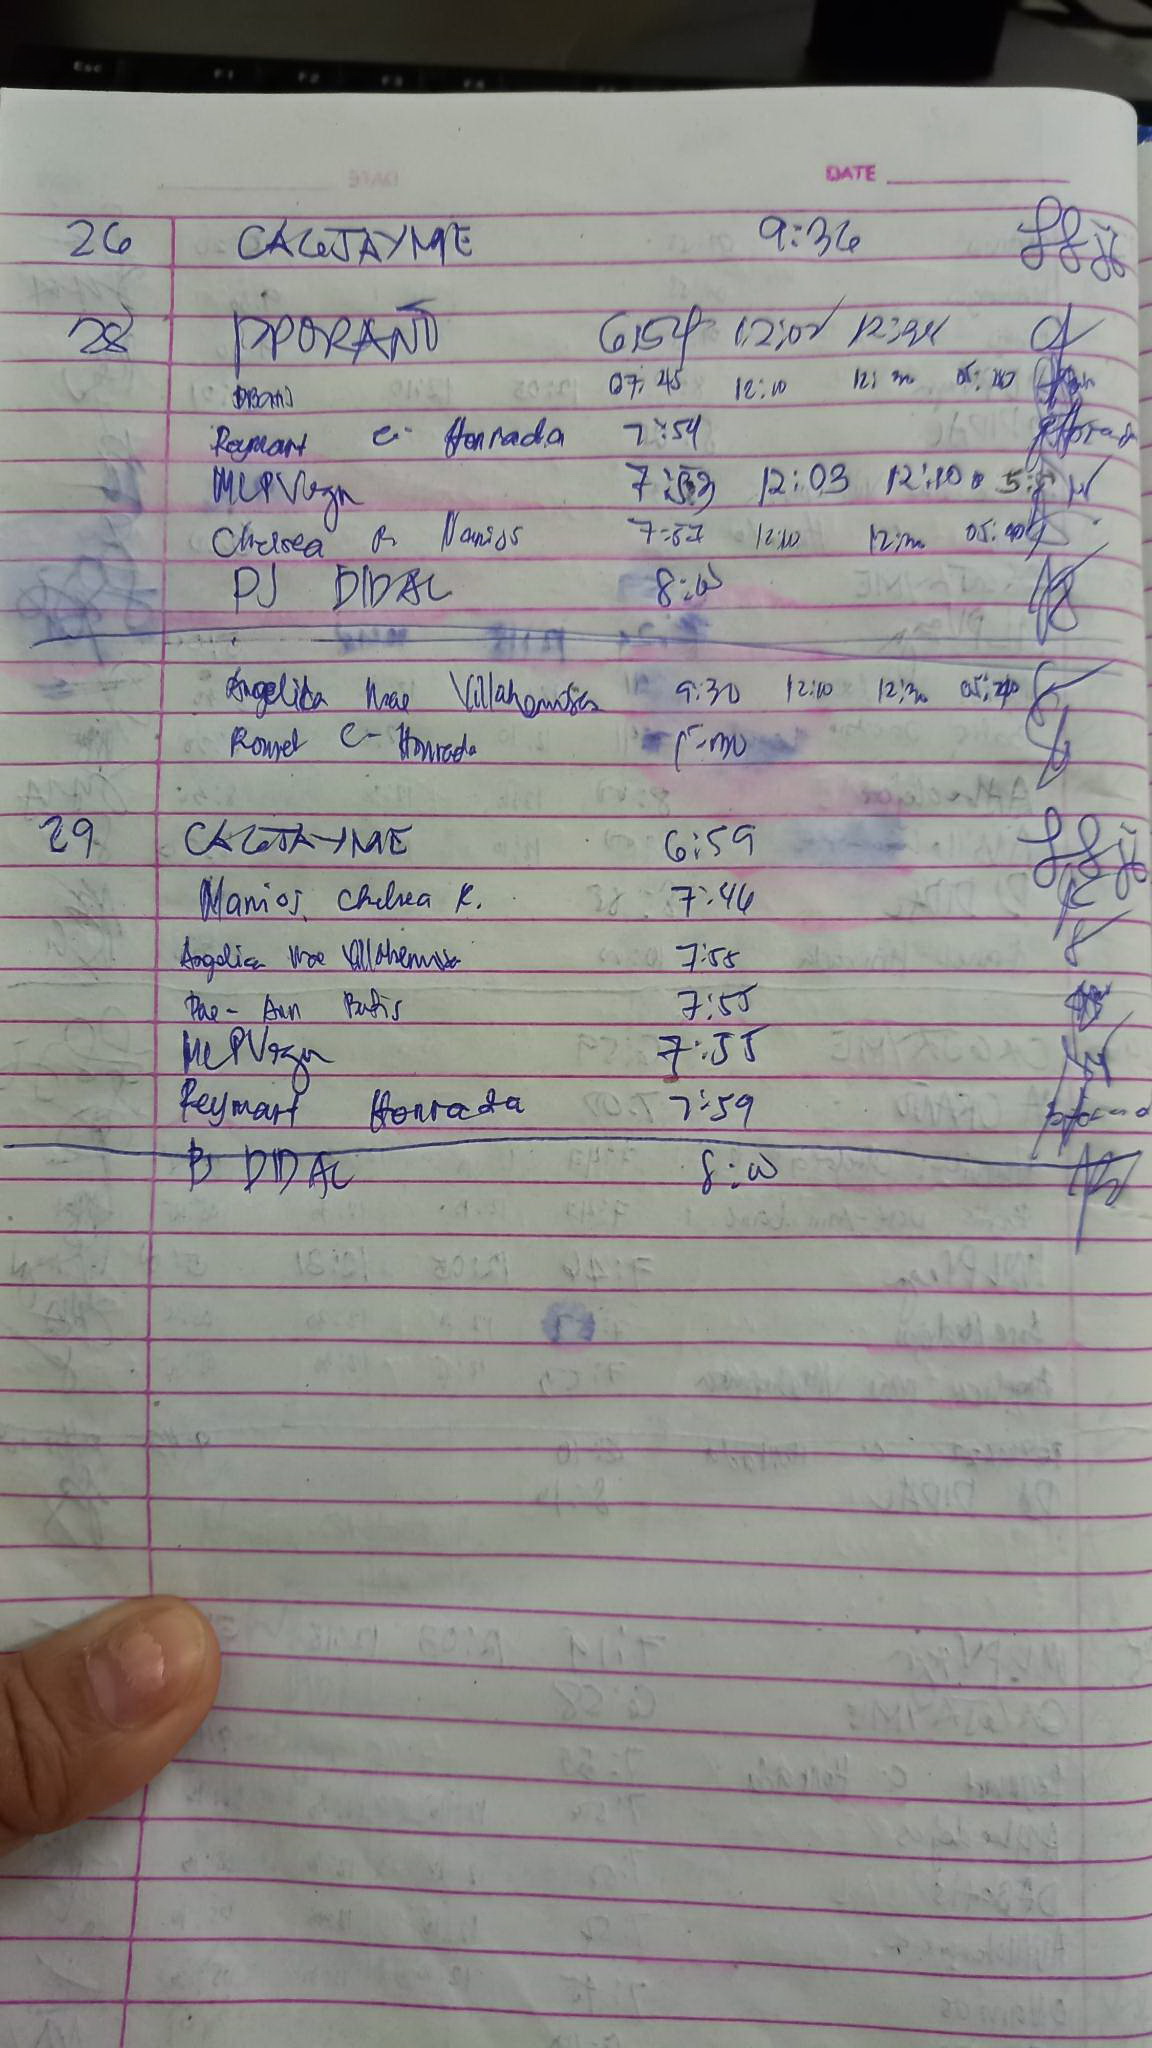 Esc F1 F2 F3 F4
DATE
26 CAGJAYME 9:36
28 PPORAND 6:54 12:02 12:34
DBatis 07:45 12:10 12:30 05:00
Reymart C. Honrada 7:54
MLPVega 7:53 12:03 12:10
Chelsea R. Manios 7:57 12:10 12:30
PJ DIDAL 8:00
Angelika Mae Villahermosa 9:30 12:10 12:30
C- Honrada
29 CAGJAYME 6:59
Manios, Chelsea R. 7:46
Angelica Mae Villahermosa 7:55
Rae-Ann Batis 7:55
MLPVega 7:55
Reymart Honrada 7:59
PJ DIDAL 8:00